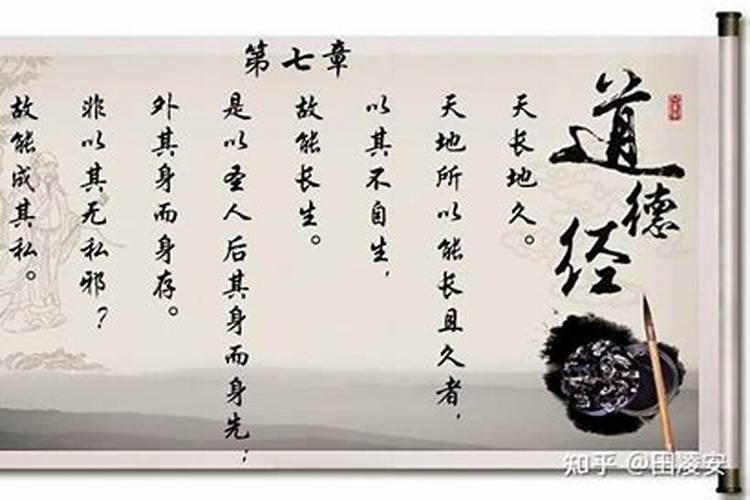 道德经
第七章
天长地久。
天地所以能长且久者，
以其不自生，
故能长生。
是以圣人后其身而身先；
外其身而身存。
非以其无私邪？
故能成其私。
知乎 @田凌安